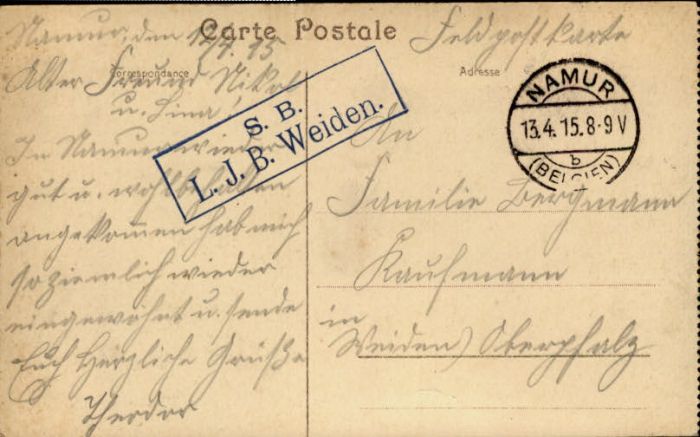 Carte Postale
Correspondance
Adresse
Namur, den 12/4. 15
Alter Freund Nikol
u. Lina!
In Namur wieder
gut u. wohlbehalten
angekommen hab mich
so ziemlich wieder
eingewöhnt u. sende
Euch Herzliche Grüße
Theodor
S. B.
L. J. B. Weiden.
Feldpostkarte
NAMUR
13.4.15.8-9V
b
(BELGIEN)
An
Familie Bergmann
Kaufmann
in
Weiden) Oberpfalz